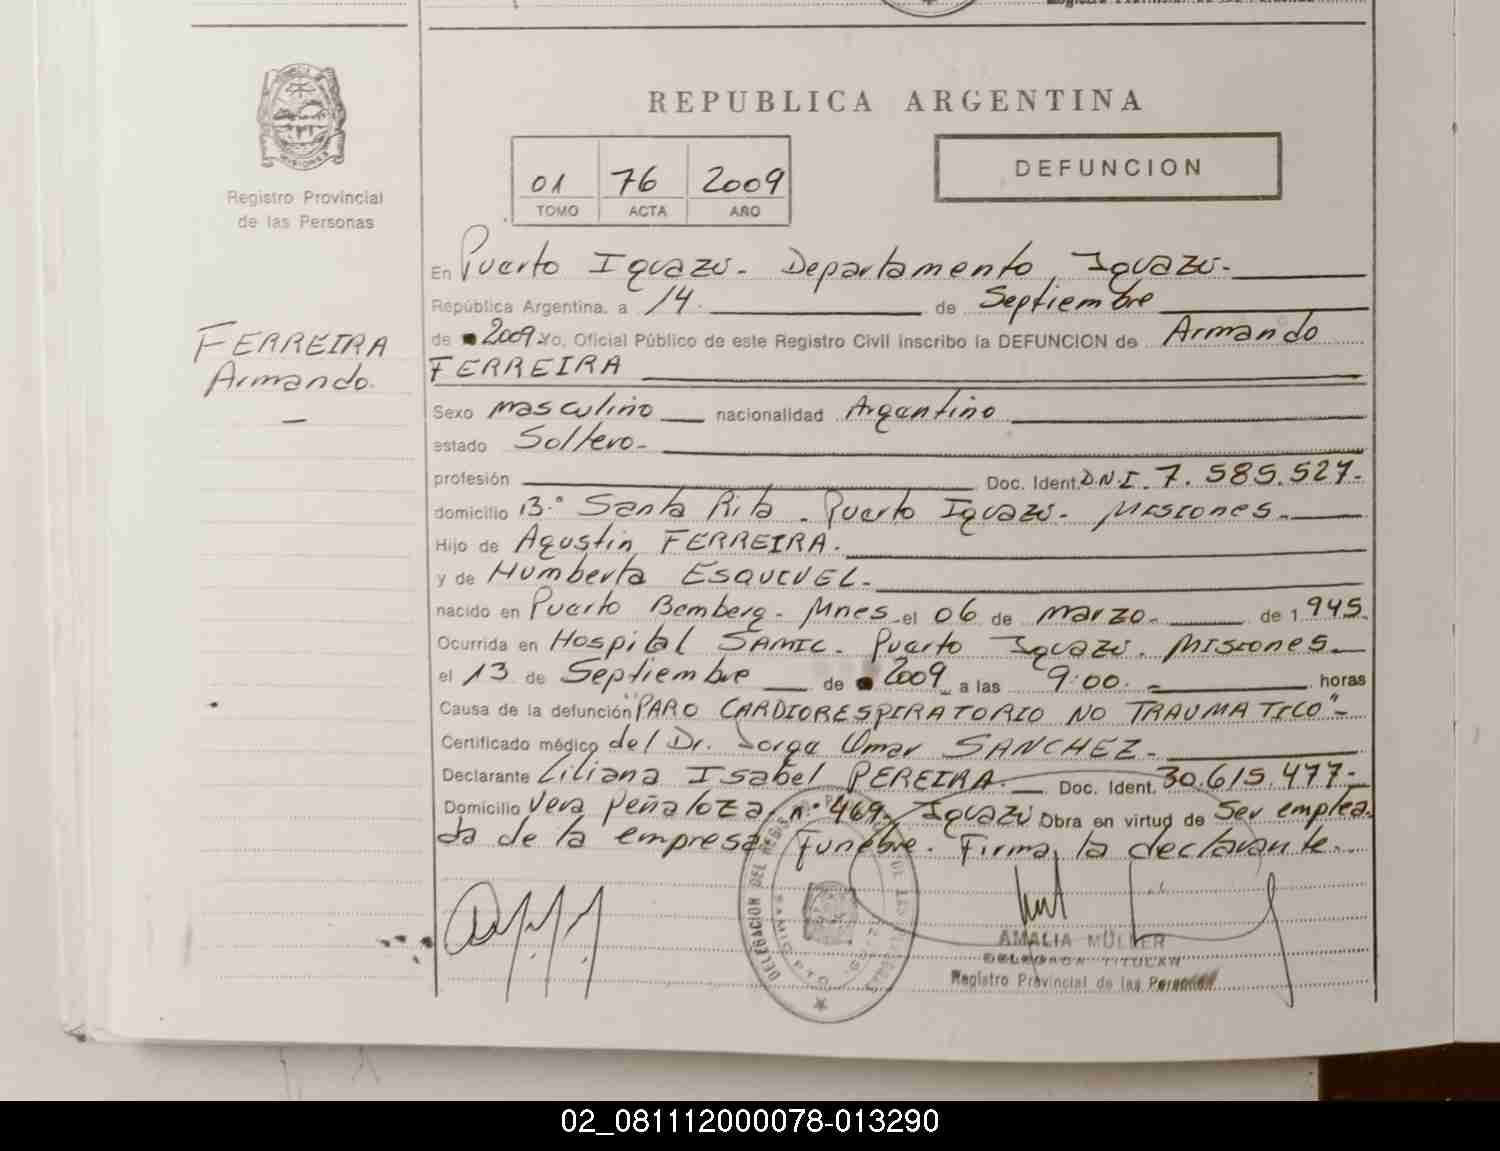 REPUBLICA ARGENTINA
MISIONES
Registro Provincial
de las Personas
01 76 2009
TOMO ACTA AÑO
DEFUNCION
En Puerto Iguazú. Departamento Iguazú.
República Argentina, a 14 de Septiembre
de 2009 Yo, Oficial Público de este Registro Civil inscribo la DEFUNCION de Armando
FERREIRA
FERREIRA
Armando.
Sexo masculino nacionalidad Argentino
estado Soltero.
profesión Doc. Ident. D.N.I. 7.585.527.
domicilio B.° Santa Rita. Puerto Iguazú. Misiones.
Hijo de Agustin FERREIRA.
y de Humberta ESQUIVEL.
nacido en Puerto Bemberg. Mnes. el 06 de marzo. de 1945.
Ocurrida en Hospital SAMIC. Puerto Iguazú. Misiones.
el 13 de Septiembre de 2009 a las 9:00. horas
Causa de la defunción "PARO CARDIORESPIRATORIO NO TRAUMATICO".
Certificado médico del Dr. Jorge Omar SANCHEZ.
Declarante Liliana Isabel PEREIRA. Doc. Ident. 30.615.477.
Domicilio Vera Peñaloza n° 469. Iguazú Obra en virtud de Ser emplea
da de la empresa Funebre. Firma, la declarante.
DELEGACION DEL
AMALIA MÜLLER
DELEGADA TITULAR
Registro Provincial de las Personas
02_081112000078-013290